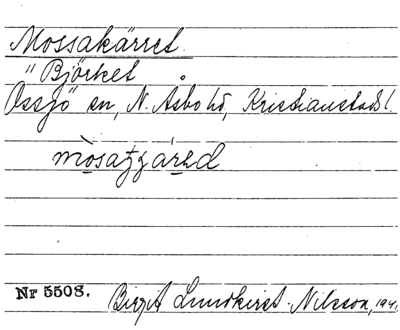 Mossakärret
" Björket
Össjö sn, N. Åsbo hd, Kristianstads l.
Nr 5508. Birgit Lundkvist-Nilsson, 1941